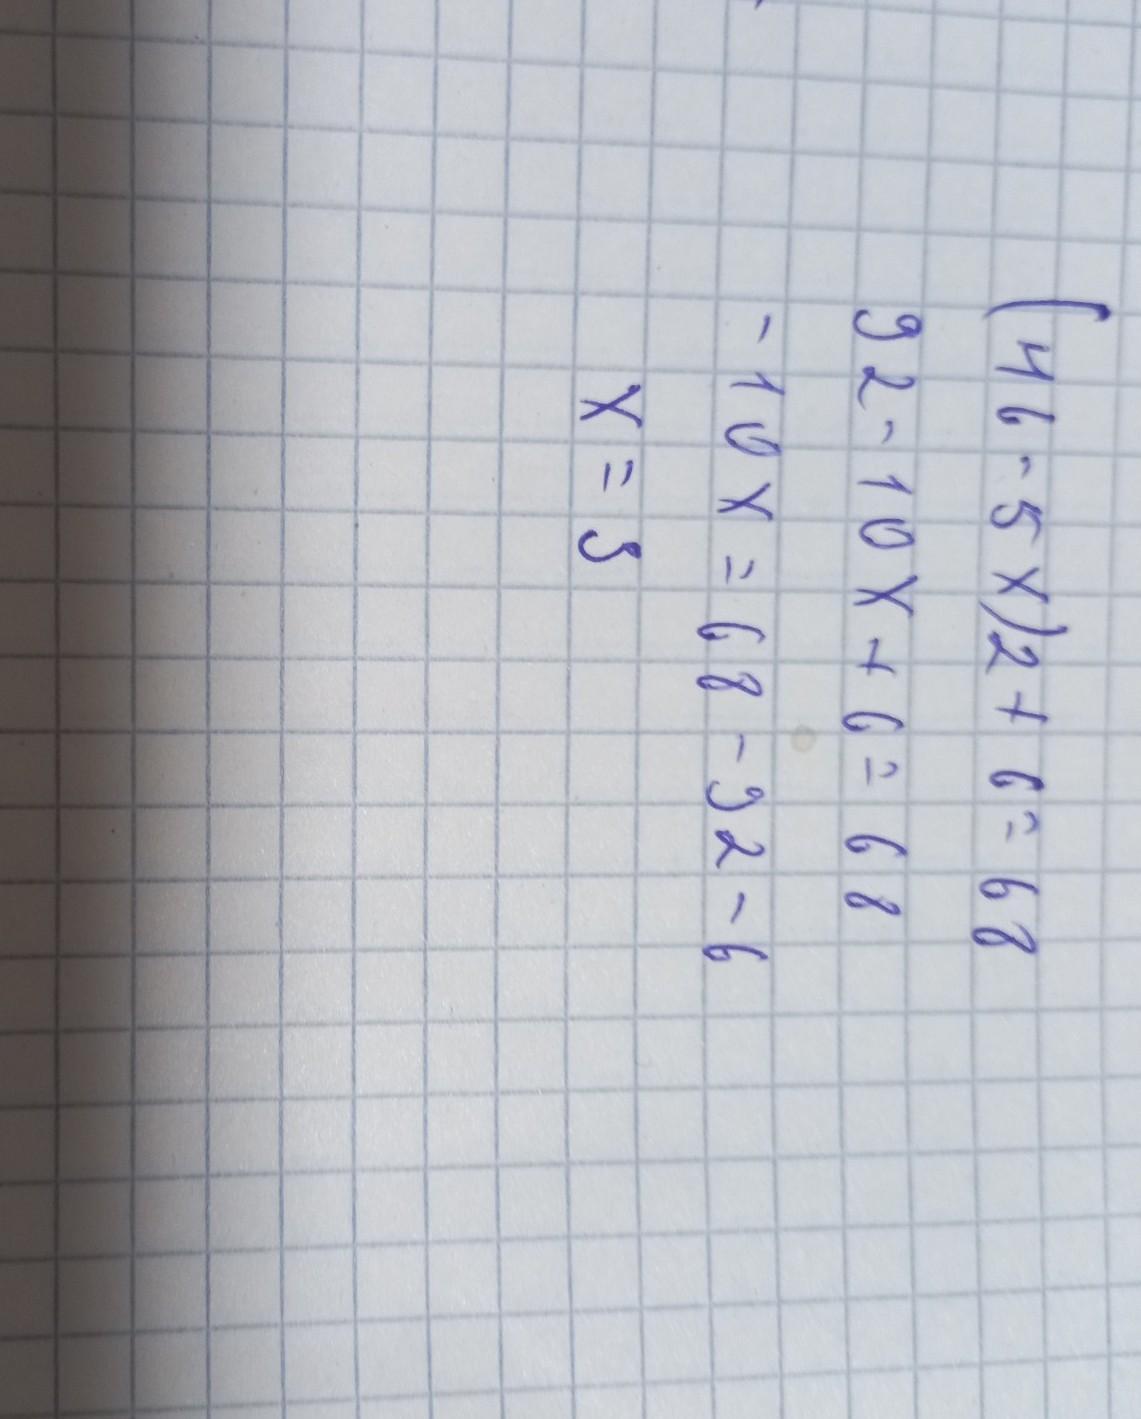 (46-5x)2+6=68
92-10x+6=68
-10x=68-92-6
x=3